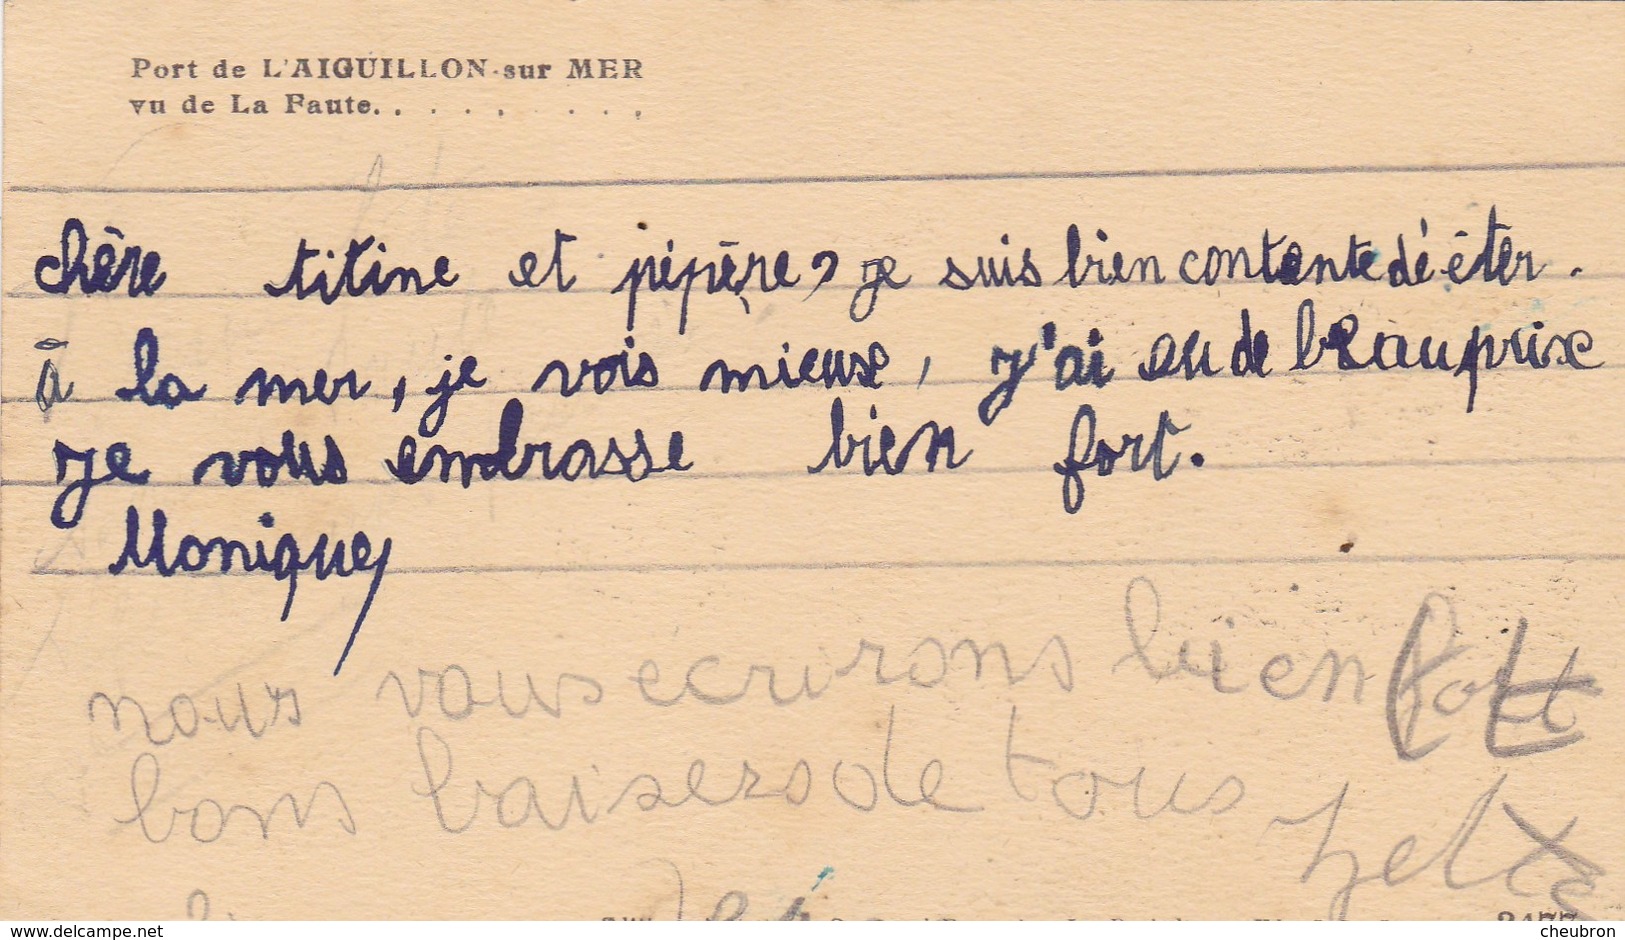 Port de L'AIGUILLON-sur MER
vu de La Faute. . . . . . . . .
chère titine et pépère, je suis bien contente dé êter.
à la mer, je vois mieuse, j'ai eu de beau prixe
je vous embrasse bien fort.
Monique
nous vous ecrirons bien
bons baisers de tous
delcampe.net
cheubron